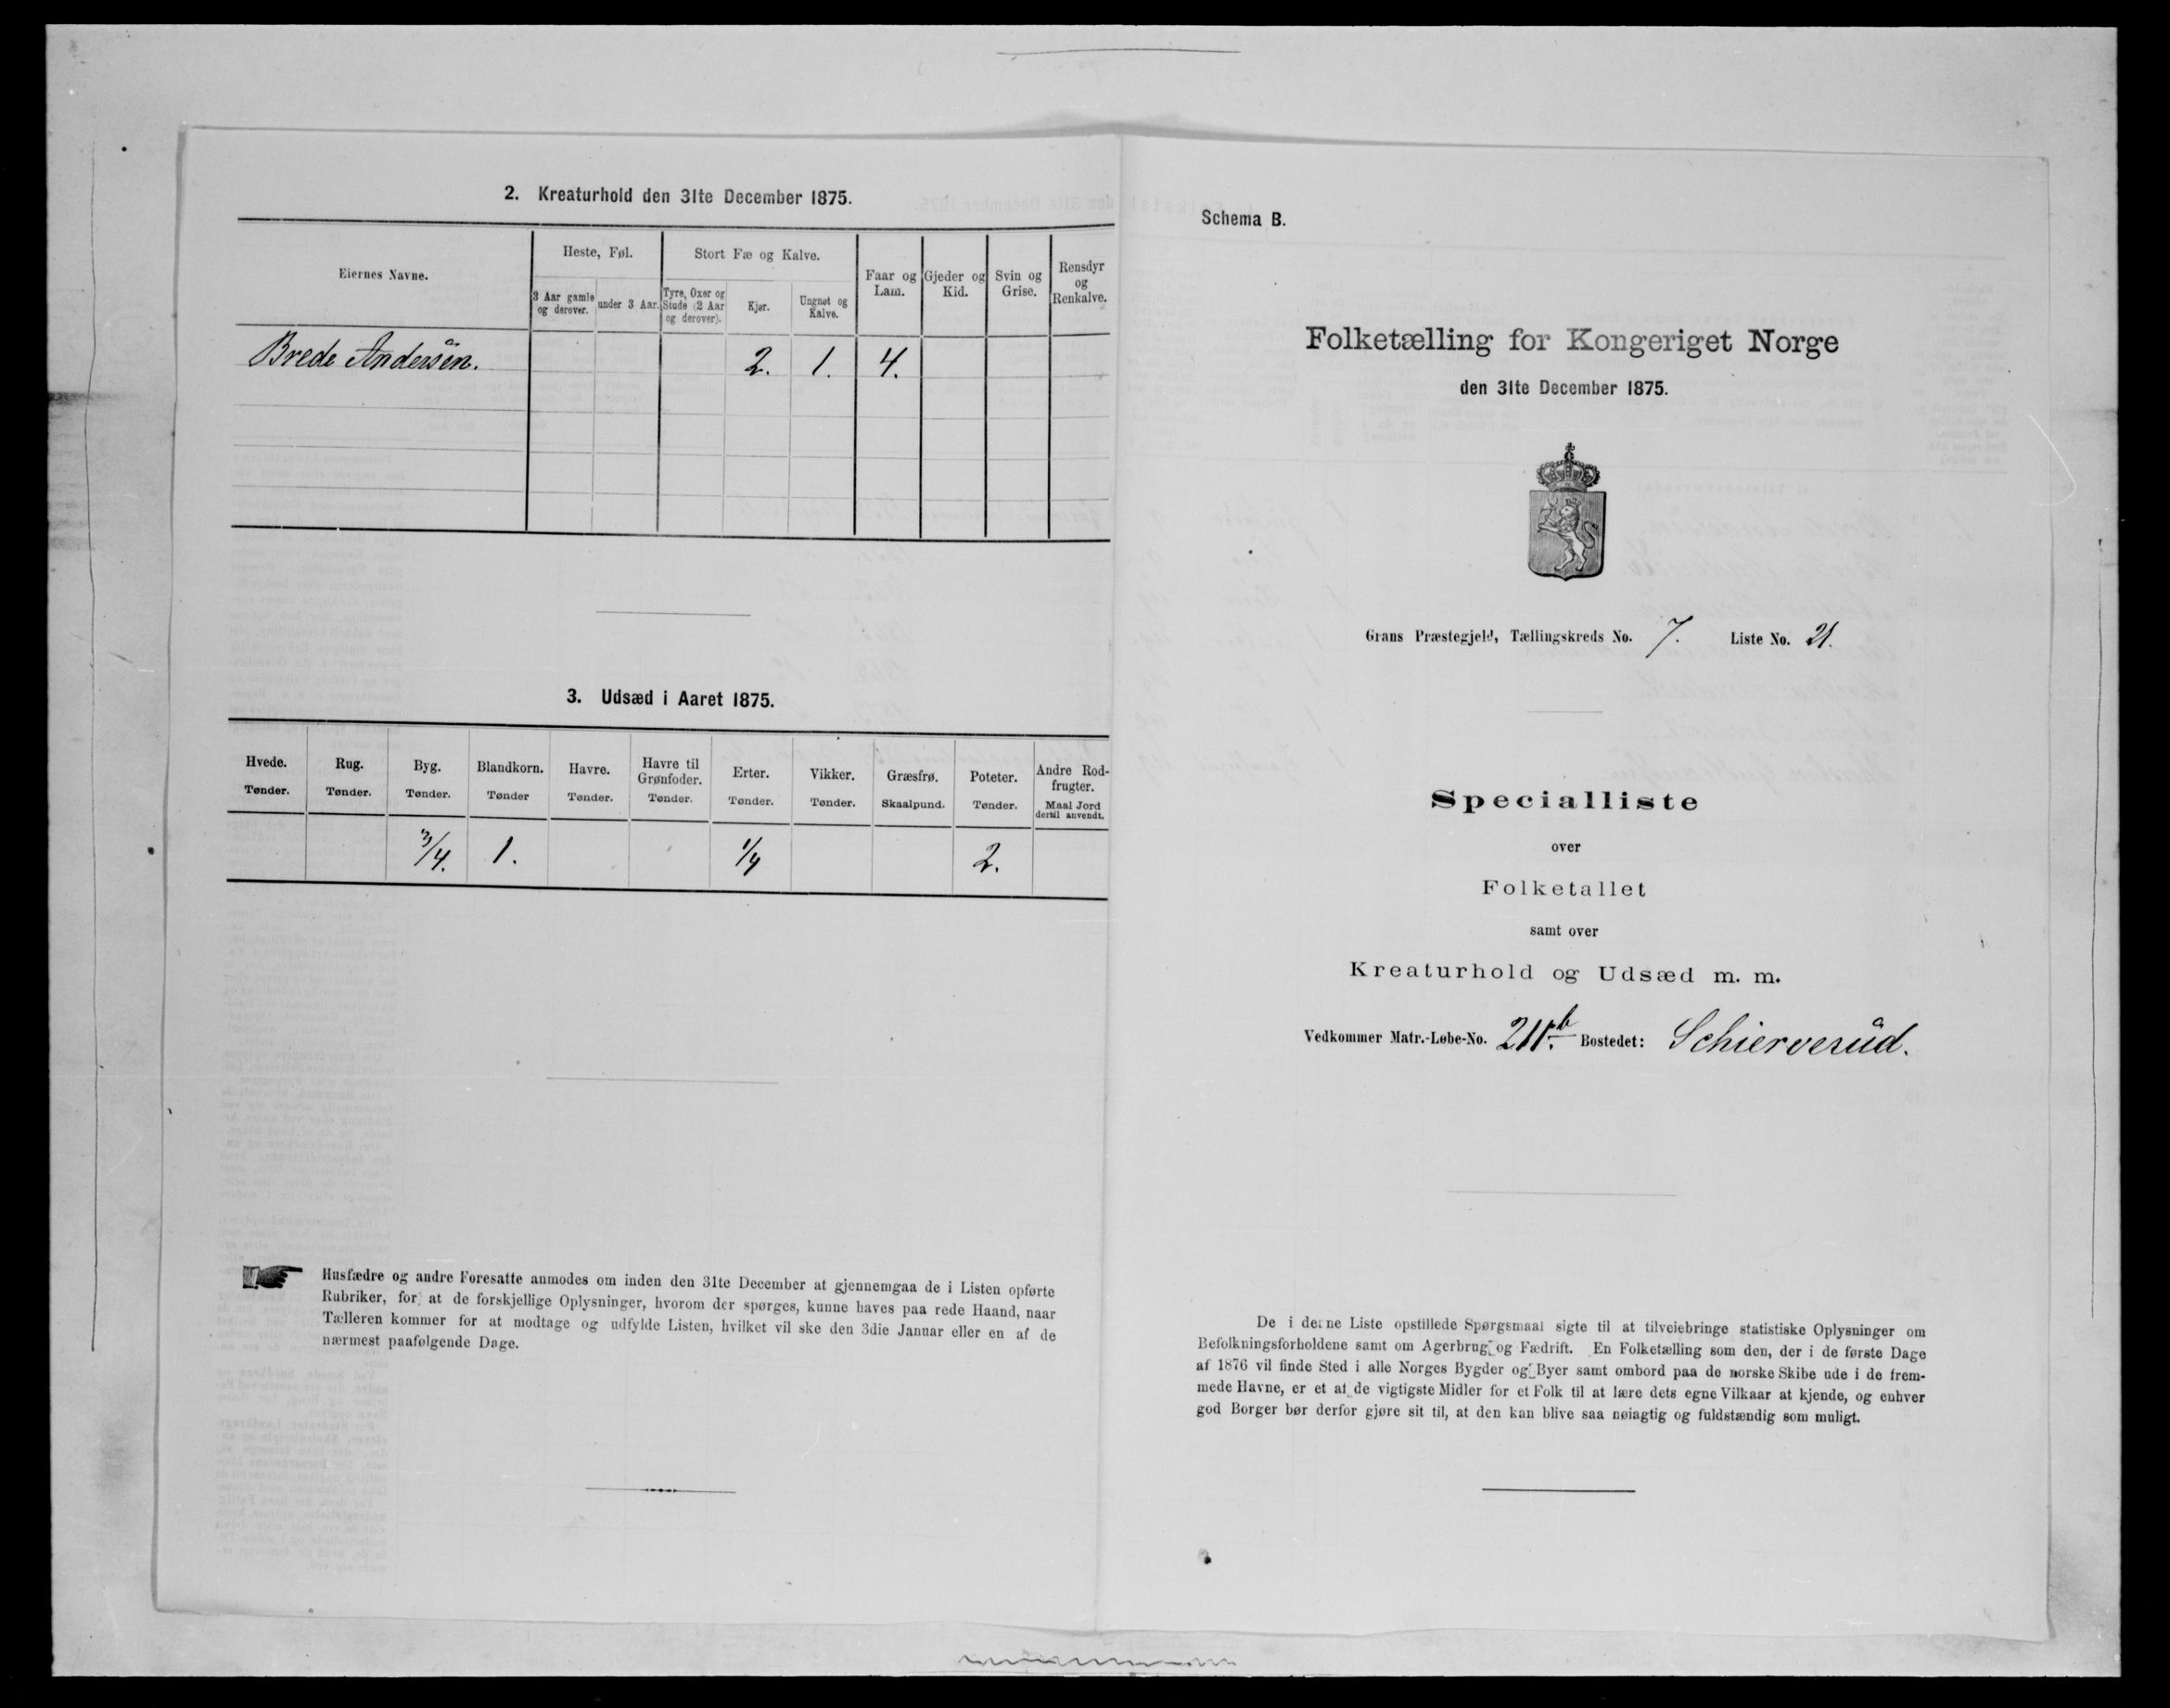 2. Kreaturhold den 31te December 1875.
Eiernes Navne.
Heste, Føl.
Stort Fæ og Kalve.
Faar og Lam.
Gjeder og Kid.
Svin og Grise.
Rensdyr og Renkalve.
3 Aar gamle og derover.
under 3 Aar.
Tyre, Oxer og Stude (2 Aar og derover).
Kjør.
Ungnøt og Kalve.
Brede Andersen. 2. 1. 4.
3. Udsæd i Aaret 1875.
Hvede. Rug. Byg. Blandkorn. Havre. Havre til Grønfoder. Erter. Vikker. Græsfrø. Poteter. Andre Rodfrugter.
Tønder. Tønder. Tønder. Tønder Tønder. Tønder. Tønder. Tønder. Skaalpund. Tønder. Maal Jord dertil anvendt.
3/4. 1. 1/4 2.
Husfædre og andre Foresatte anmodes om inden den 31te December at gjennemgaa de i Listen opførte
Rubriker, for at de forskjellige Oplysninger, hvorom der spørges, kunne haves paa rede Haand, naar
Tælleren kommer for at modtage og udfylde Listen, hvilket vil ske den 3die Januar eller en af de
nærmest paafølgende Dage.
Schema B.
Folketælling for Kongeriget Norge
den 31te December 1875.
Grans Præstegjeld, Tællingskreds No. 7. Liste No. 21.
Specialliste
over
Folketallet
samt over
Kreaturhold og Udsæd m. m.
Vedkommer Matr.-Løbe-No. 211.b Bostedet: Schierverud.
De i denne Liste opstillede Spørgsmaal sigte til at tilveiebringe statistiske Oplysninger om
Befolkningsforholdene samt om Agerbrug og Fædrift. En Folketælling som den, der i de første Dage
af 1876 vil finde Sted i alle Norges Bygder og Byer samt ombord paa de norske Skibe ude i de frem-
mede Havne, er et af de vigtigste Midler for et Folk til at lære dets egne Vilkaar at kjende, og enhver
god Borger bør derfor gjøre sit til, at den kan blive saa nøiagtig og fuldstændig som muligt.